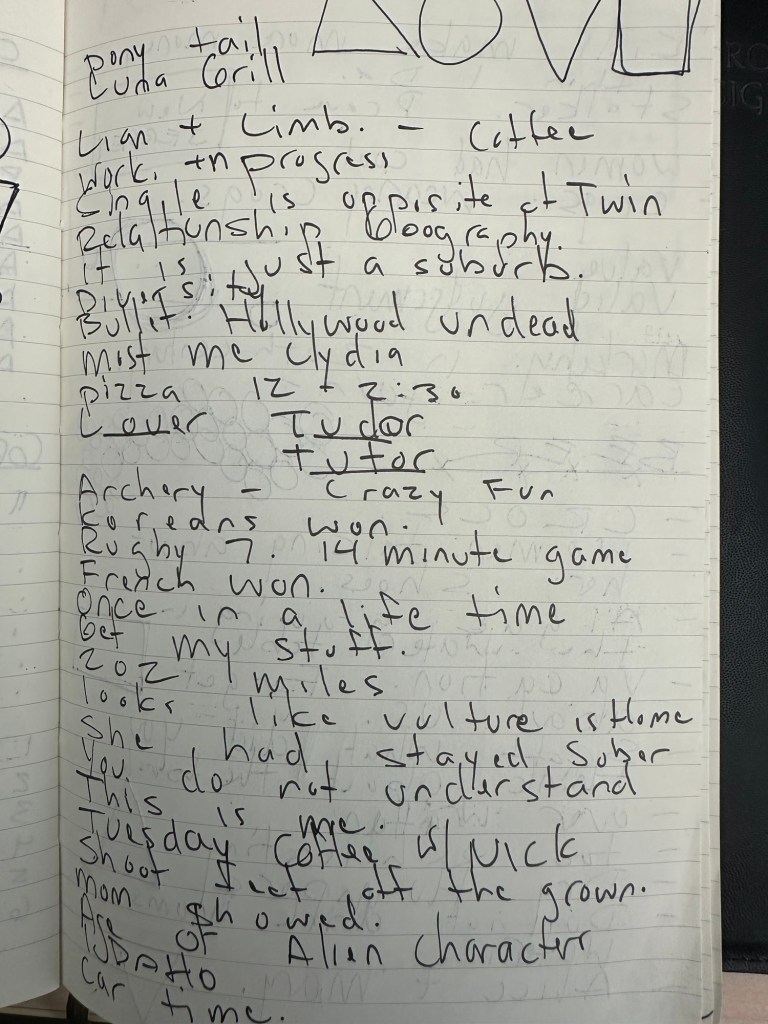 Pony tail
Luna Grill
Lian + Limb. - Coffee
Work, in progress
Single is opposite of Twin
Relationship
It is just a suburb.
Diversity
Bullit. Hollywood undead
most me Lydia
Pizza 12 - 2:30
Lover Tudor
tutor
Archery - Crazy Fun
Koreans won.
Rugby 7. 14 minute game
French won.
Once in a life time
Get my stuff.
202 miles
looks like vulture is Home
She had stayed Sober
You do not understand
This is me.
Tuesday Coffee w/ NICK
Shoot feet off the grown.
mom showed.
Age of Alien Character
Car time.